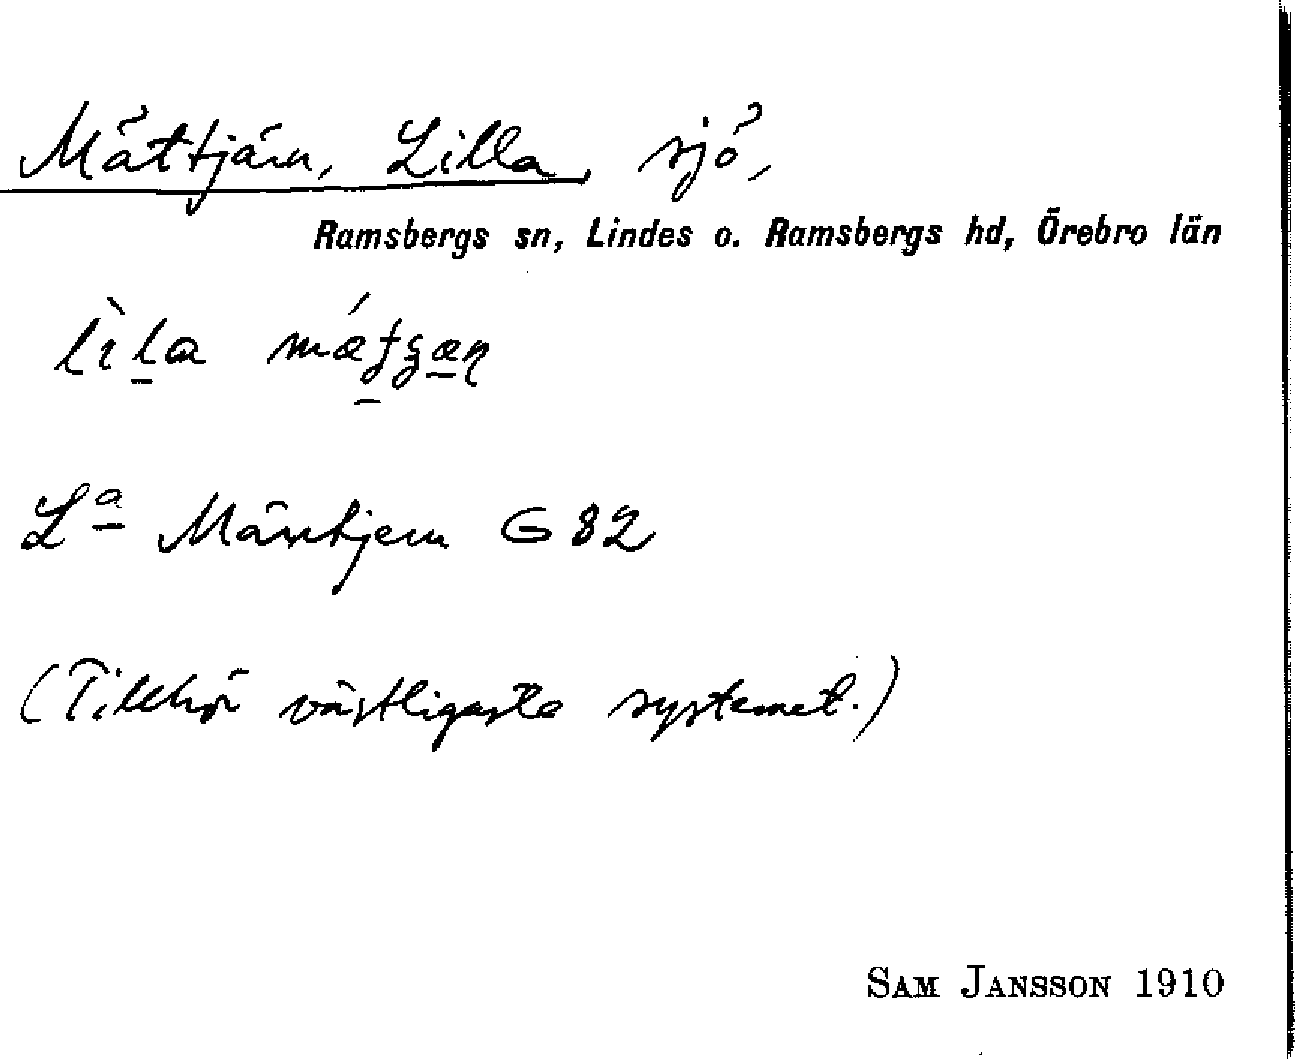 Mättjärn, Lilla, sjö,
Ramsbergs sn, Lindes o. Ramsbergs hd, Örebro län
lìla
Lª G 82
(Tillhör västligaste systemet.)
SAM JANSSON 1910